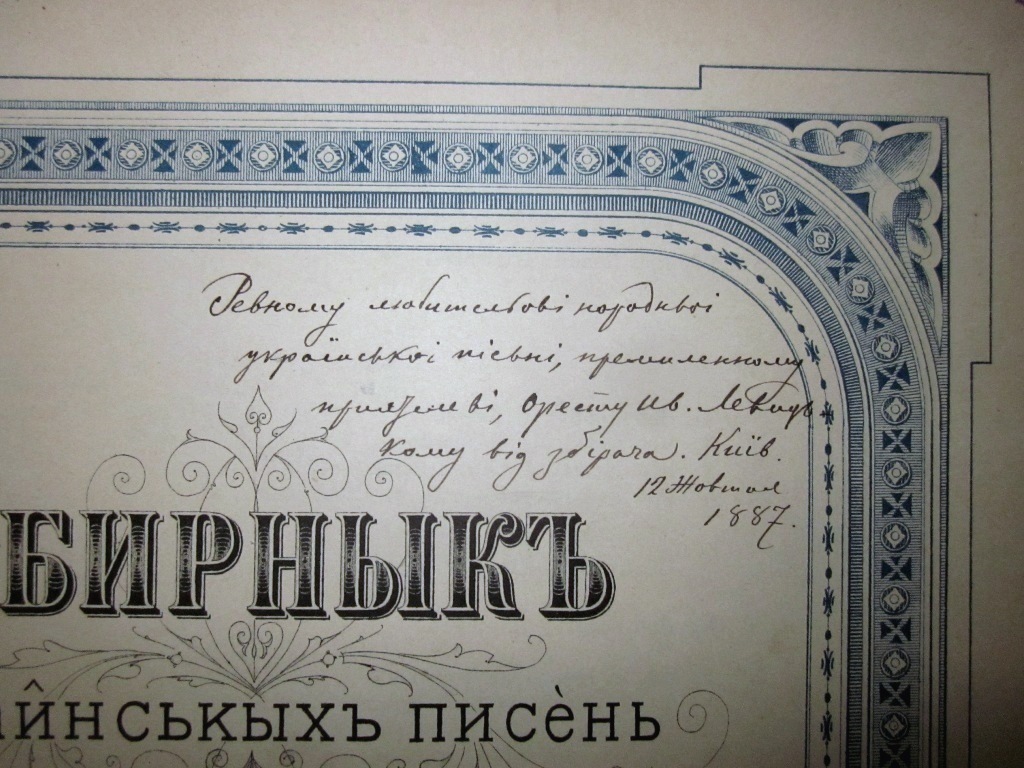 Ревному любительові народньої
української пісьні, премиленному
приятелеві, Оресту Ив. Левиць
кому від збірача. Київ.
12 Жовтня
1887.
БИРНЫКЪ
аи̂нськыхъ писѐнь